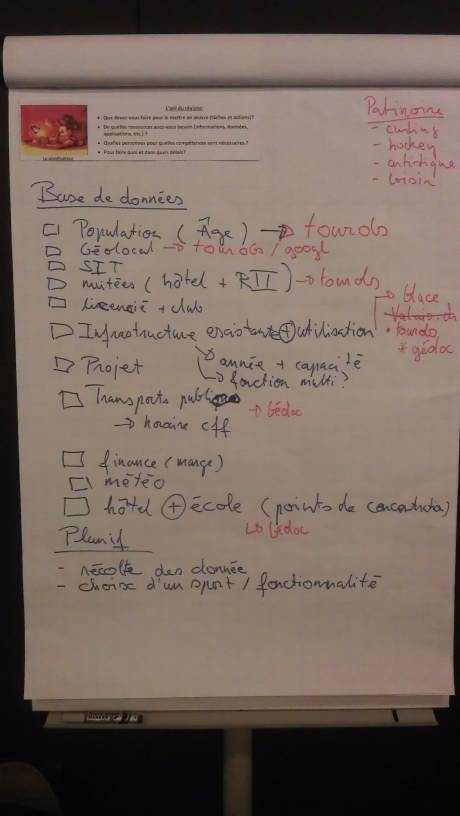 L'œil du réaliste:
• Que devez-vous faire pour le mettre en œuvre (tâches et actions)?
• De quelles ressources avez-vous besoin (informations, données, applications, etc.) ?
• Quelles personnes pour quelles compétences sont nécessaires ?
• Pour faire quoi et dans quels délais?
Patinoire
- curling
- hockey
- artistique
- loisir
Base de données
Population (Âge) → tourobs
Géolocal → tourobs / googl
SIT
nuitées (hôtel + RII) → tourobs
licencié + club
Infrastructure existante + utilisation
→ glace
• tourobs
* gédoc
→ année + capacité
→ fonction multi?
Projet
Transports publics → Gédoc
→ horaire cff
finance (marge)
météo
hôtel + école (points de concentration)
→ Gédoc
Planif
- récolte des donnée
- choix d'un sport / fonctionnalité